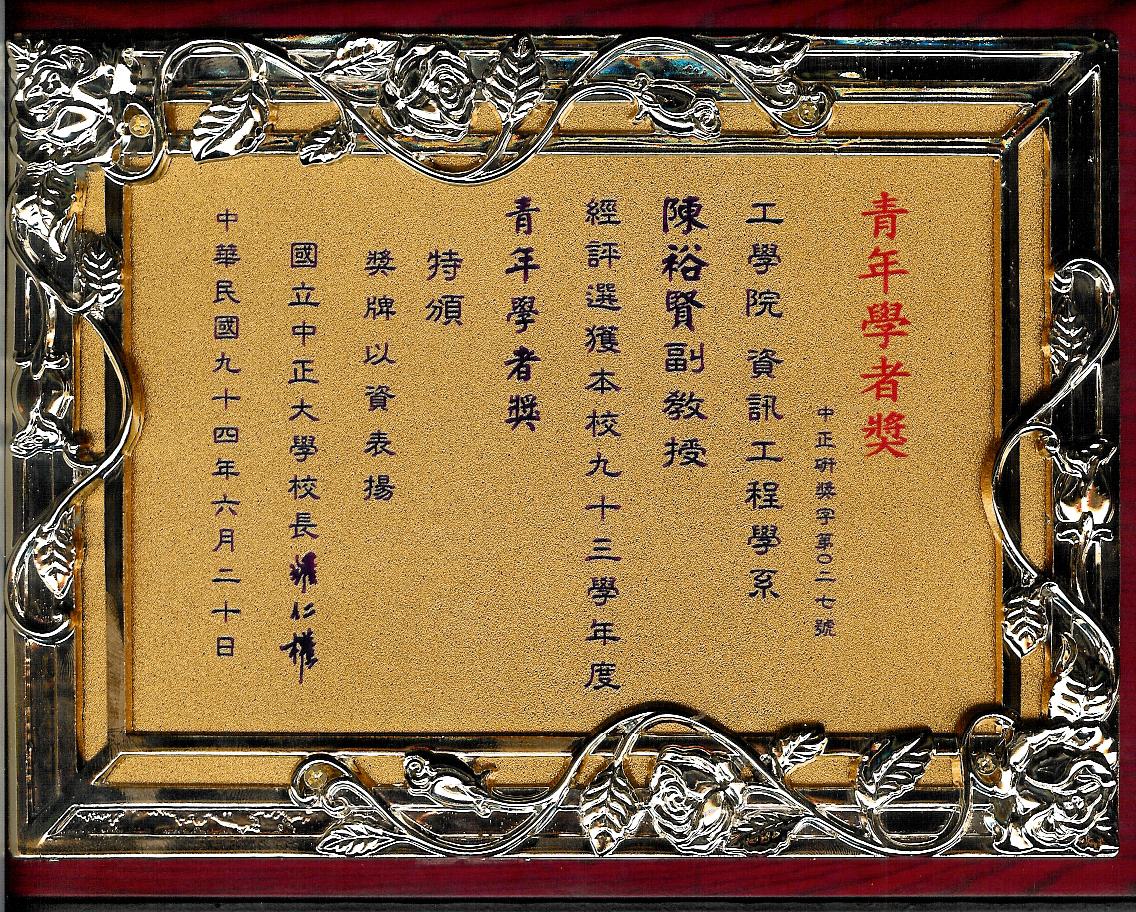 青年學者獎
中正研獎字第〇二七號
工學院 資訊工程學系
陳裕賢副教授
經評選獲本校九十三學年度
青年學者獎
特頒
獎牌以資表揚
國立中正大學校長羅仁權
中華民國九十四年六月二十日